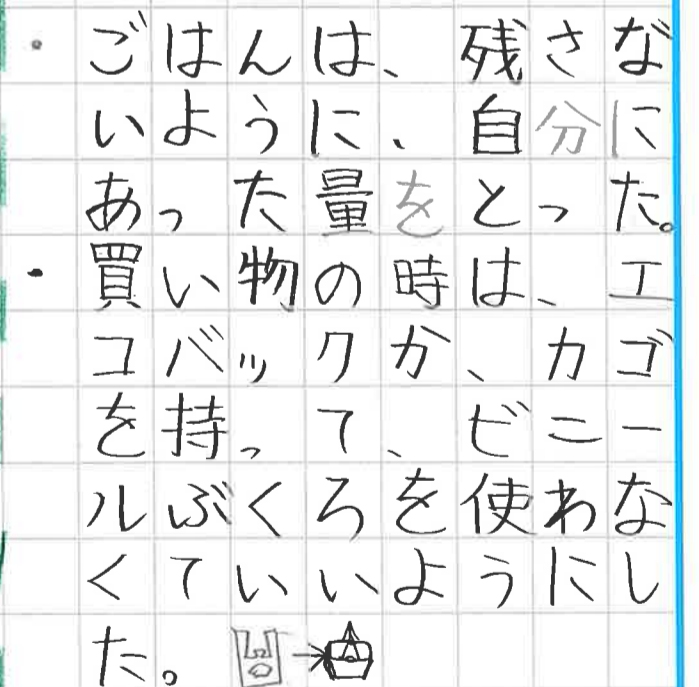 ・ごはんは、残さな
いように、自分に
あった量をとった。
・買い物の時は、エ
コバックか、カゴ
を持って、ビニー
ルぶくろを使わな
くていいようにし
た。